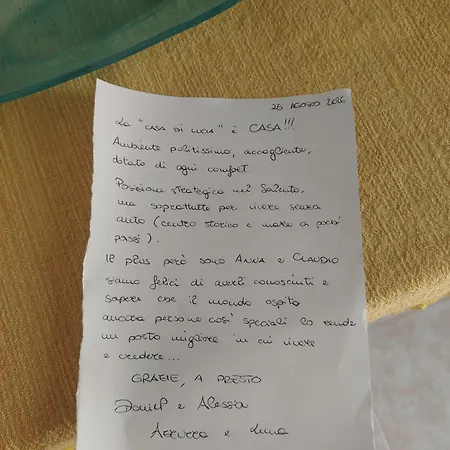 25 AGOSTO 2026
La "CASA DI LUCIA" è CASA!!!
Ambiente pulitissimo, accogliente,
dotato di ogni comfort.
Posizione strategica nel Salento,
ma soprattutto per vivere senza
auto (centro storico e mare a pochi
passi).
Il plus però sono ANNA e CLAUDIO
siamo felici di averli conosciuti e
sapere che il mondo ospita
ancora persone così speciali lo rende
un posto migliore in cui vivere
e credere...
GRAZIE, A PRESTO
Daniel e Alessia
Azzurra e Luna